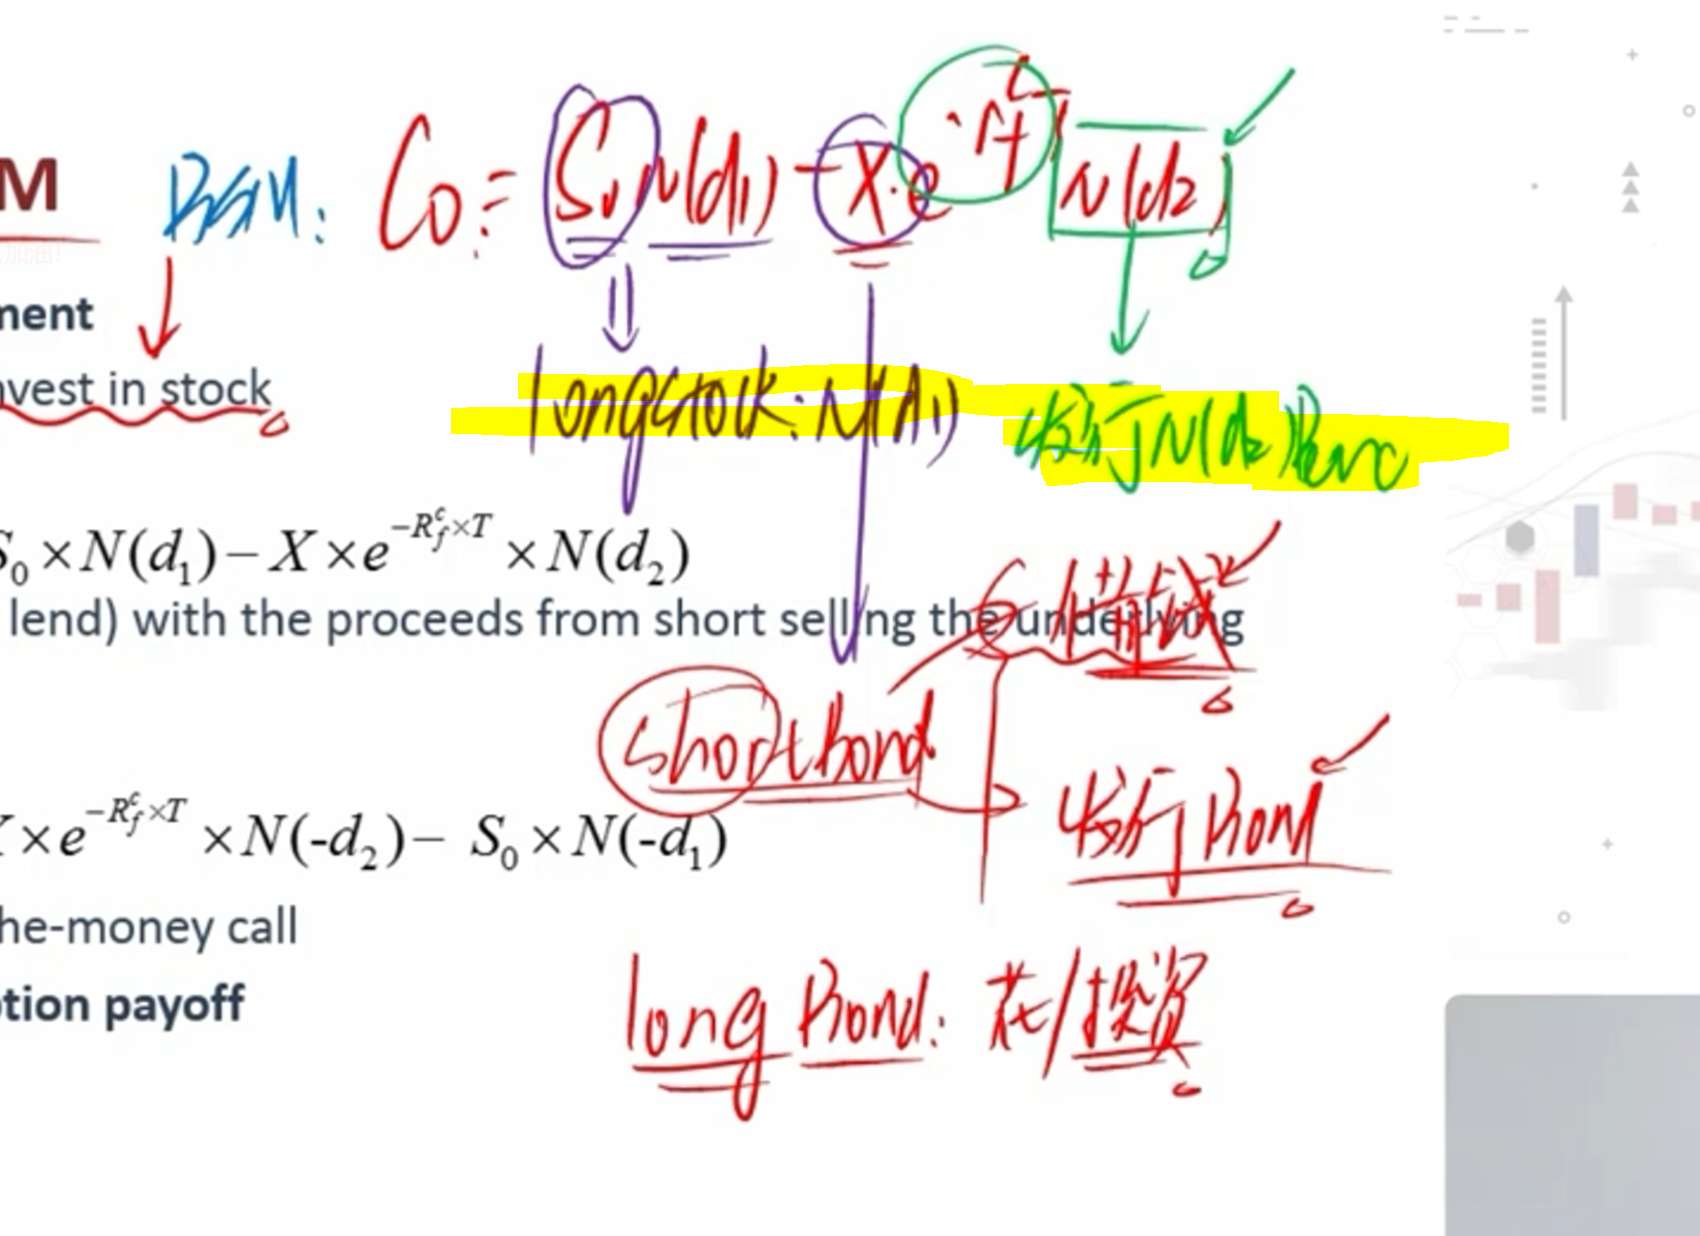 M BSM: C₀ = S₀N(d₁) - X·e^-rfT N(d₂)
ment
nvest in stock
long stock: N(d₁) 发行N(d₂)份
S₀ × N(d₁) − X × e^−R_f^c×T × N(d₂)
lend) with the proceeds from short selling the underlying
借钱
short Bond
发行 Bond
X × e^−R_f^c×T × N(-d₂) − S₀ × N(-d₁)
he-money call
long Bond: 花/投资
tion payoff